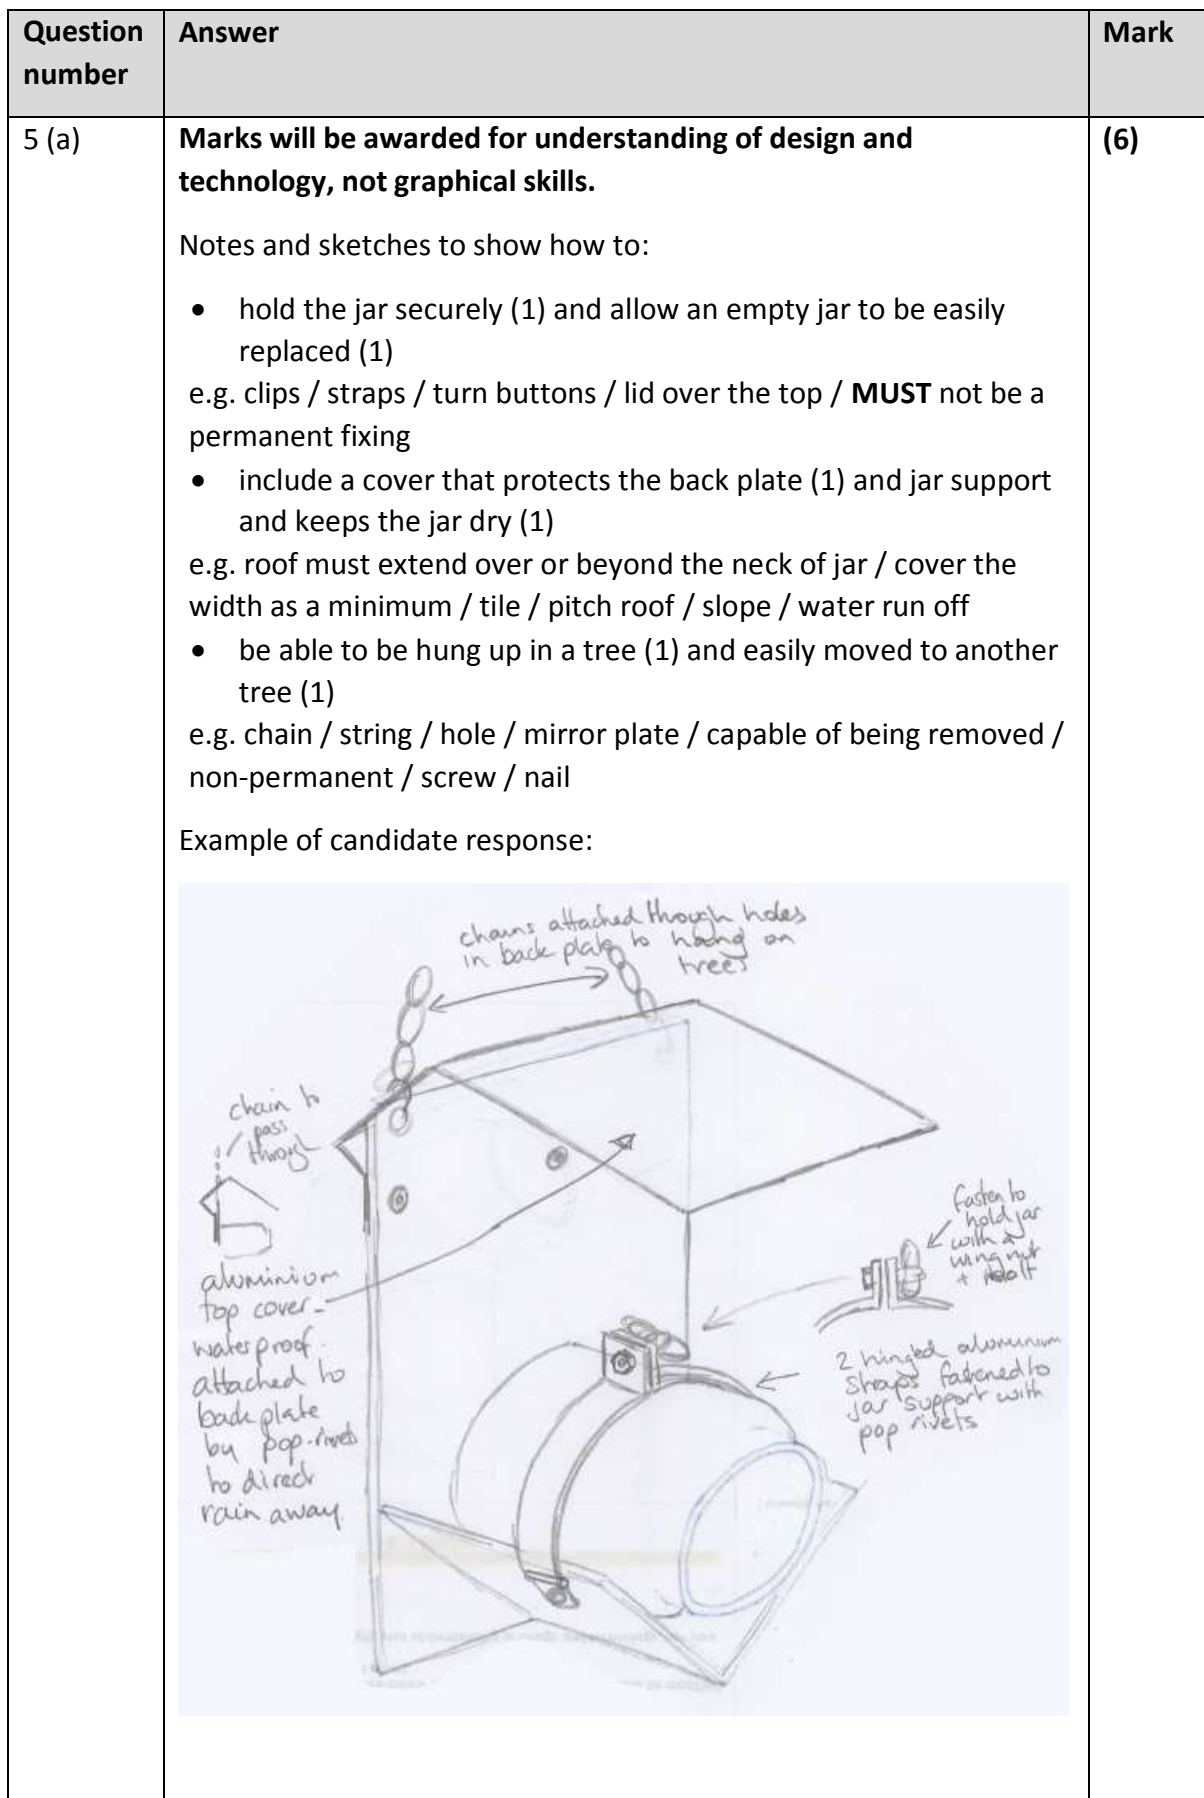 Question number
Answer
Mark
5 (a)
Marks will be awarded for understanding of design and
technology, not graphical skills.
(6)
Notes and sketches to show how to:
• hold the jar securely (1) and allow an empty jar to be easily
replaced (1)
e.g. clips / straps / turn buttons / lid over the top / MUST not be a
permanent fixing
• include a cover that protects the back plate (1) and jar support
and keeps the jar dry (1)
e.g. roof must extend over or beyond the neck of jar / cover the
width as a minimum / tile / pitch roof / slope / water run off
• be able to be hung up in a tree (1) and easily moved to another
tree (1)
e.g. chain / string / hole / mirror plate / capable of being removed /
non-permanent / screw / nail
Example of candidate response:
chains attached through holes
in back plate to hang on
trees
chain to
pass
through
aluminium
top cover -
waterproof.
attached to
back plate
by pop-rivets
to direct
rain away.
fasten to
hold jar
with a
wing nut
+ bolt
2 hinged aluminium
straps fastened to
jar support with
pop rivets